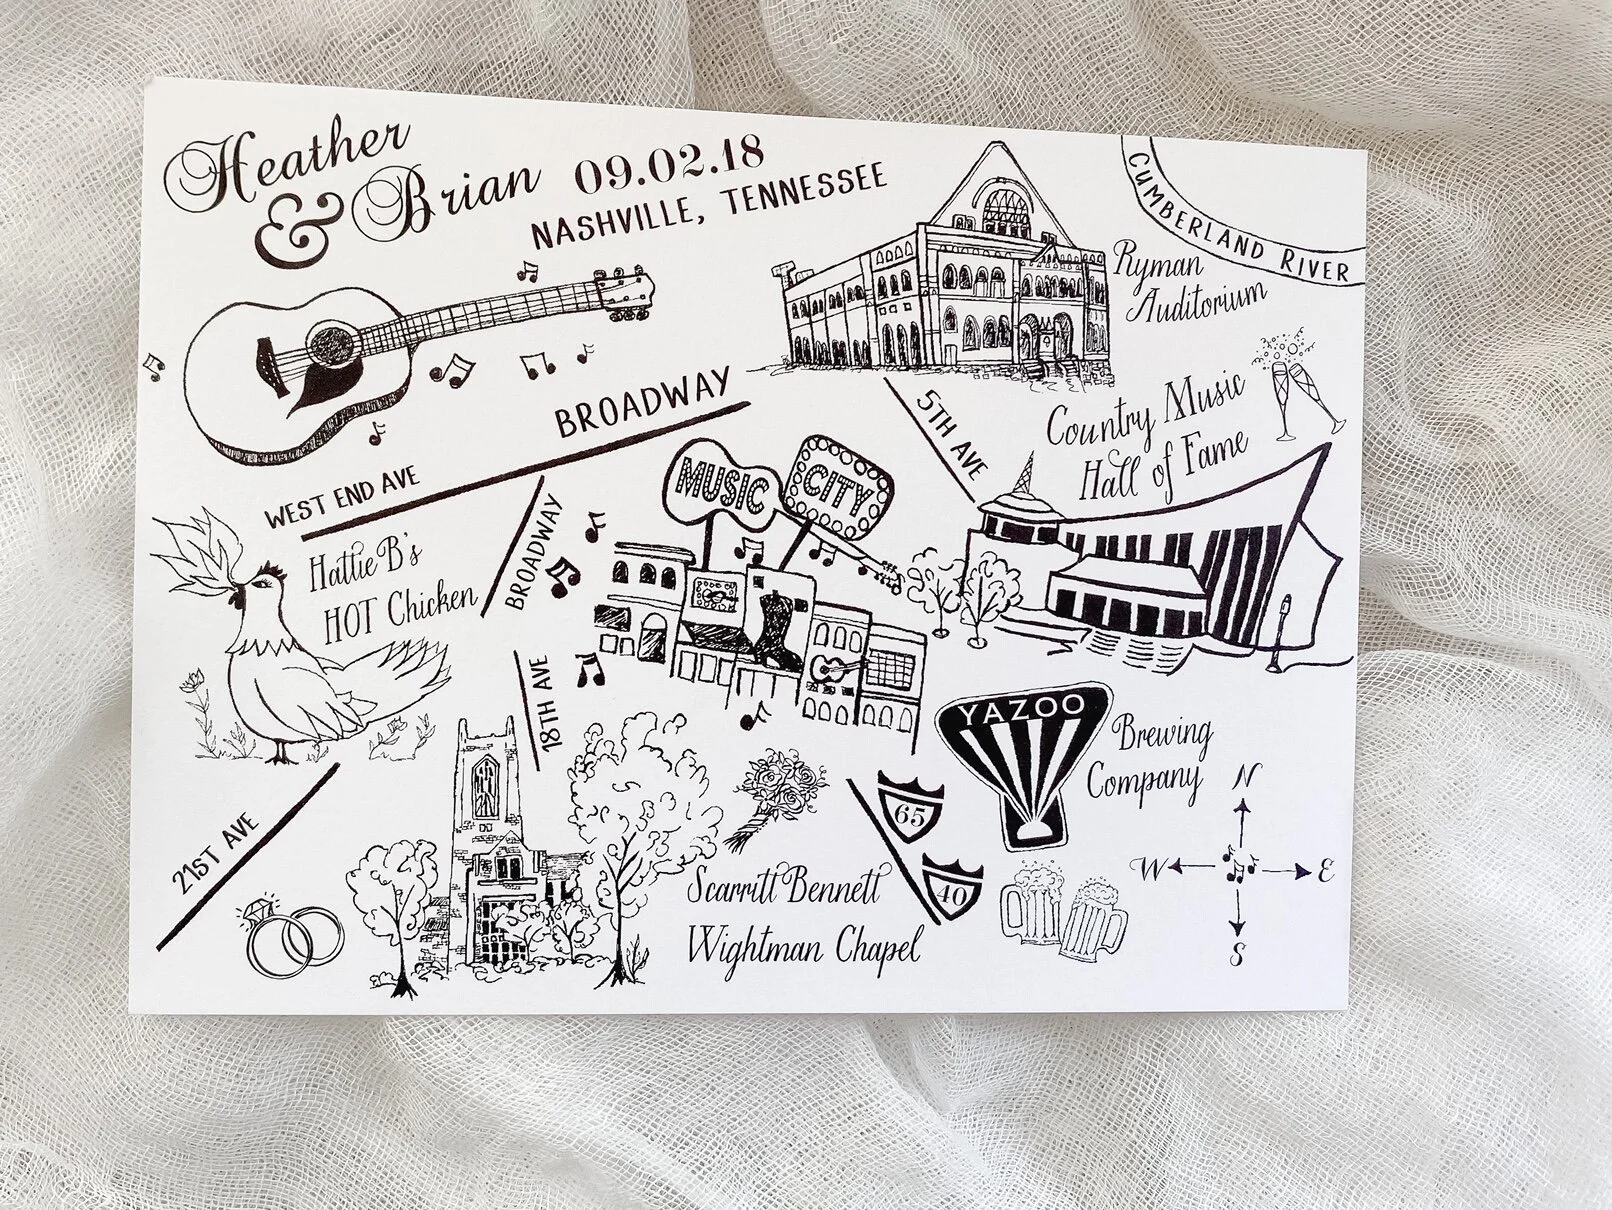 Heather
& Brian 09.02.18
NASHVILLE, TENNESSEE
CUMBERLAND RIVER
Ryman
Auditorium
BROADWAY
5TH AVE
Country Music
Hall of Fame
WEST END AVE
MUSIC CITY
Hattie B's
HOT Chicken
BROADWAY
18TH AVE
YAZOO
Brewing
Company
21ST AVE
65
40
N
W E
S
Scarritt Bennett
Wightman Chapel